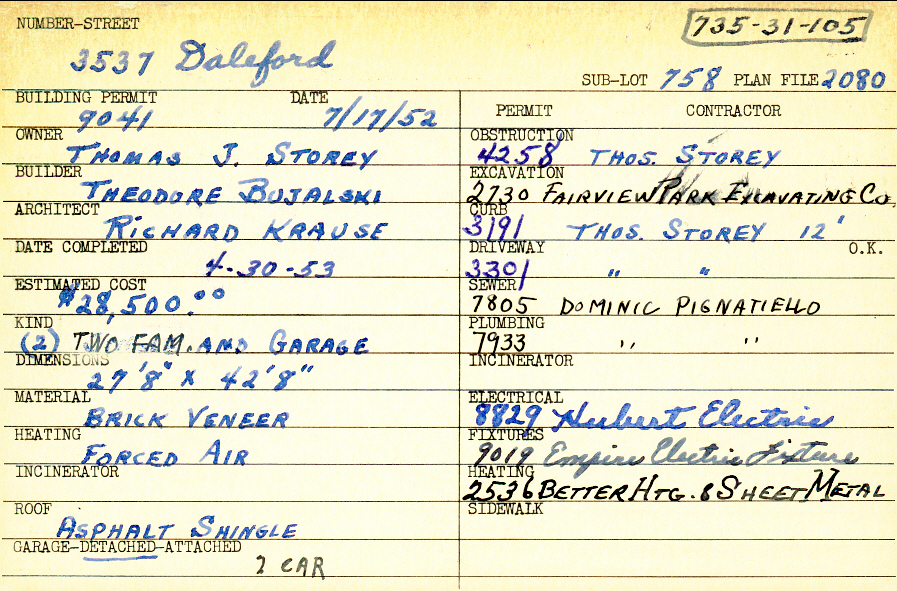 NUMBER-STREET
735-31-105
3537 Daleford
SUB-LOT 758 PLAN FILE 2080
BUILDING PERMIT DATE
9041 7/17/52
OWNER
THOMAS J. STOREY
BUILDER
THEODORE BUJALSKI
ARCHITECT
RICHARD KRAUSE
DATE COMPLETED
4-30-53
ESTIMATED COST
$28,500.00
KIND
(2) TWO FAM. AND GARAGE
DIMENSIONS
27'8" X 42'8"
MATERIAL
BRICK VENEER
HEATING
FORCED AIR
INCINERATOR
ROOF
ASPHALT SHINGLE
GARAGE-DETACHED-ATTACHED
2 CAR
PERMIT CONTRACTOR
OBSTRUCTION
4258 THOS. STOREY
EXCAVATION
2730 FAIRVIEW PARK EXCAVATING CO.
CURB
3191 THOS. STOREY 12'
DRIVEWAY O.K.
3301 " "
SEWER
7805 DOMINIC PIGNATIELLO
PLUMBING
7933 " "
INCINERATOR
ELECTRICAL
8829 Hubert Electric
FIXTURES
9019 Empire Electric Fixture
HEATING
2536 BETTER HTG. & SHEET METAL
SIDEWALK